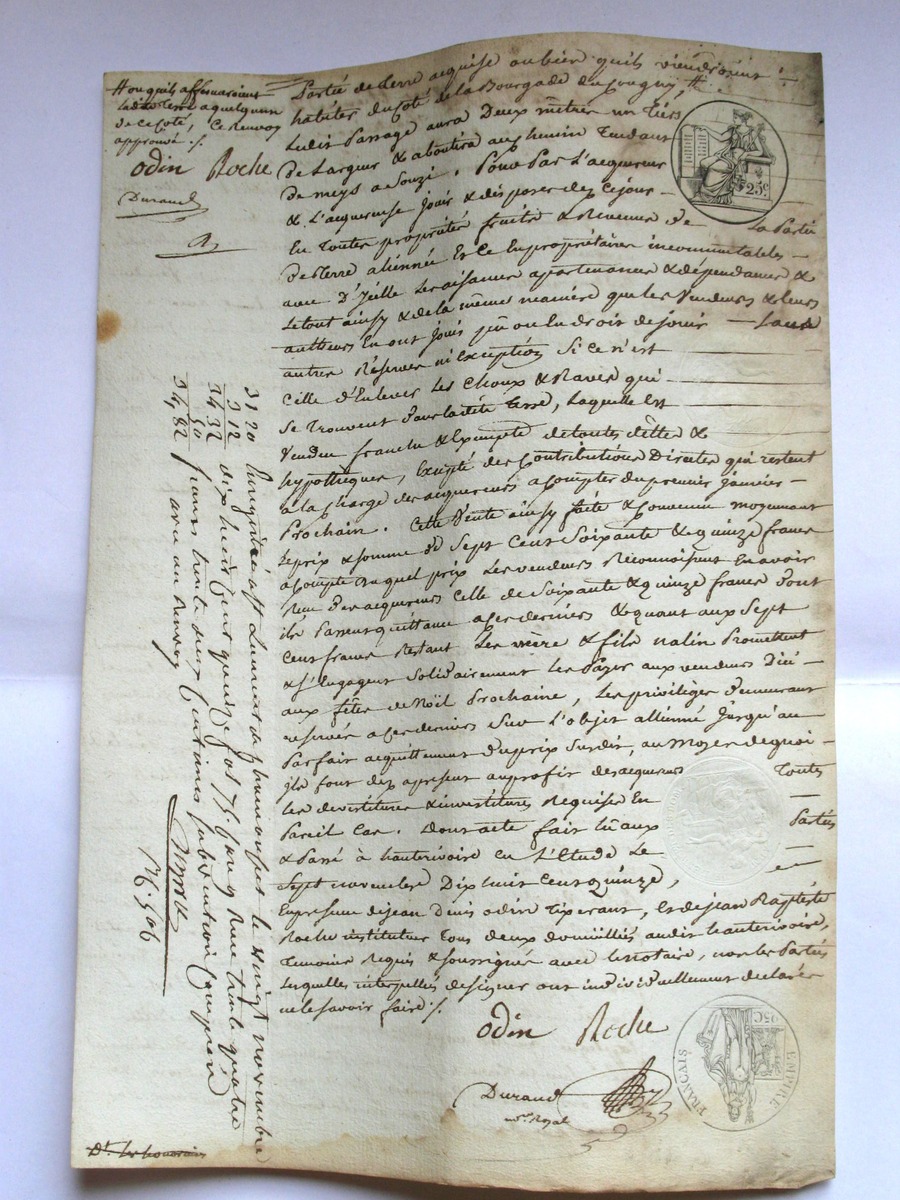 ou quils affermeraient
ladite terre a quelquun
de ce Coté, Ce Renvoy
approuvé ./.
Odin Roche
Durand
Partie de terre acquise ou bien quils viendroient
habiter du Coté de la Bourgade du
Ledit Passage aura Deux mêtres un tiers
de Largeur & aboutira au chemin Tendant
de meys a Souzi. Pour Par L'acquereur
& L'acquereuse Jouir & disposer dez Cejour
En toutes propriétés fruits & Revenus de La Partie
de terre aliennée Et Ce En propriétaires incommutables
avec D'Icelle Les aisances apartenances & dépendances &
Le tout ainsy & de la même maniere que les Vendeurs & leurs
autheurs En ont Joui pû ou du droit de jouir Sans
autres Réserves ni Exception Si ce n'est
Celle d'Enlever Les Choux & Raves qui
Se trouvent dans ladite terre, Laquelle Est
Vendue franche & Exempte de toutes dettes &
hypotheques, Excepté des Contributions Directes qui restent
a la Charge des acquereurs a Compter du premier Janvier
Prochain. Cette Vente ainsy faite & Convenue moyennant
le prix & somme de Sept Cent Soixante & quinze francs
a Compte duquel prix Les vendeurs Reconnoissent En avoir
Reçu des acquereurs Celle de Soixante & quinze francs dont
ils Passent quittance a Ces derniers & quant aux Sept
Cent francs Restant Les mère & fils nalin Promettent
& s'Engagent Solidairement Les Payer aux vendeurs Dici
aux fêtes de Noël Prochaine, Les priviléges demeurant
reservés a Ces derniers Sur L'objet allienné Jusqu'au
Parfait acquittement du prix Susdit, au Moyen de quoi
ils font dez apresent au profit des acquereurs Toutes
Les devestitures & investitures Requises En
Pareil Cas. Dont acte fait Lû aux Parties
& Passé à hauterivoire En L'Etude Le
Sept novembre Dix huit Cent Quinze,
En presence de jean Denis odin Tixerant, Et de jean Baptiste
Roche instituteur Tous deux domiciliés audit hauterivoire,
Temoins Requis & Soussignés avec le notaire, non les Parties
Lesquelles interpellées de signer ont individuellement declarés
ne le savoir faire ./.
Odin Roche
Durand
n.re Royal
25c
EMPIRE FRANÇAIS
25C
31 20
3 12
34.32
50
34,82
Enregistré a St Laurent de chamousset le vingt novembre
dix huit Cent quinze fol 75. Reçu trente quatre
francs trente deux Centimes subvention Comprise